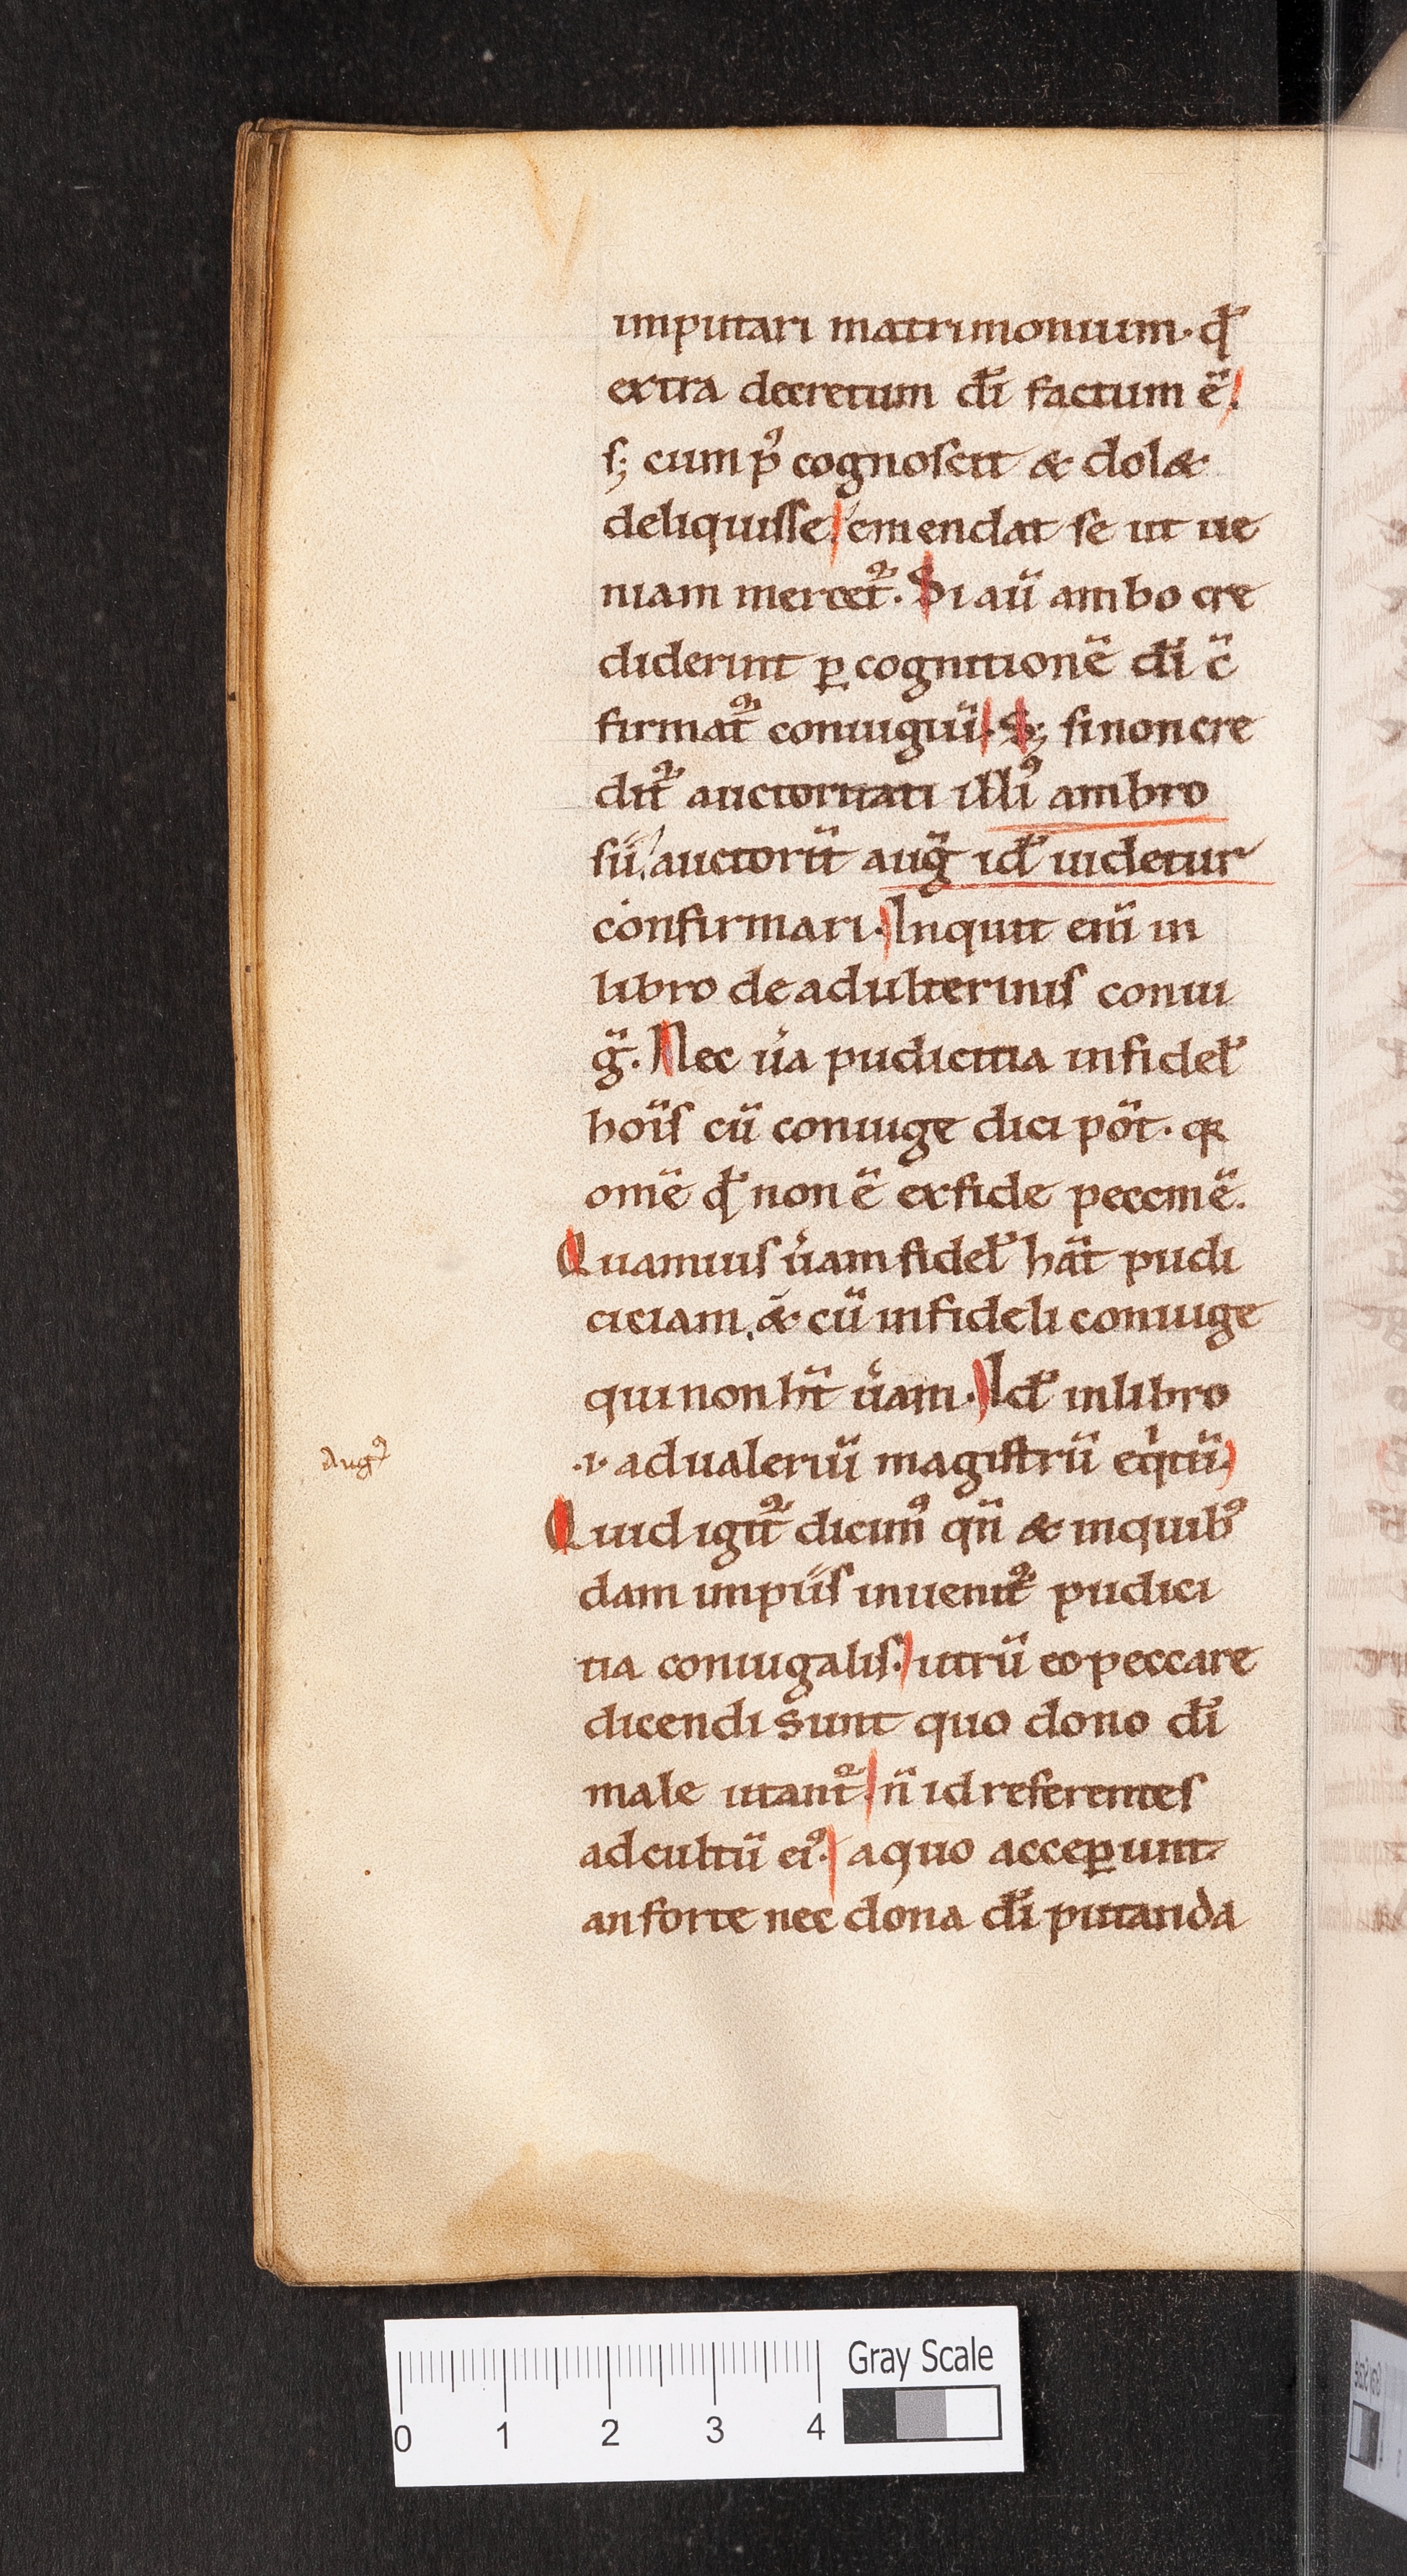 imputari matrimonium· qd̄
extra decretum dī factum ē.
s; cum p᷒ cognoscit & dolet
deliquisse. emendat se ut ue
niam meretᷣ. Si aū ambo cre
diderint ꝑ cognitionē dī c̄
firmatᷣ coniugiū. S; si non cre
ditᷣ auctoritati illi᷒ ambro
sii. auctorū augͣ id̄ uidetur
confirmari. Inquit enī in
libro de adulterinis coniu
g̈. Nec ůa pudicitia infidel̄
hoīs cū coniuge dici pōt. qꝛ
omē qd̄ non ē ex fide peccm ē.
Quamuis ůam fidel̄ hāt pudi
ciciam, & cū infideli coniuge
qui non ht̄ ůam. Id̄ in libro
.i. ad ualeriū magistrū eqͥtū.
Quid igitᷣ dicim᷒ qn̄ & in quib᷒
dam impiis inuenitᷣ pudici
tia coniugalis. utrū eo peccare
dicendi sunt quo dono dī
male utantᷣ. n̄ id referentes
ad cultū ei᷒. a quo acceꝑunt
an forte nec dona dī putanda
Aug᷒
0 1 2 3 4
Gray Scale